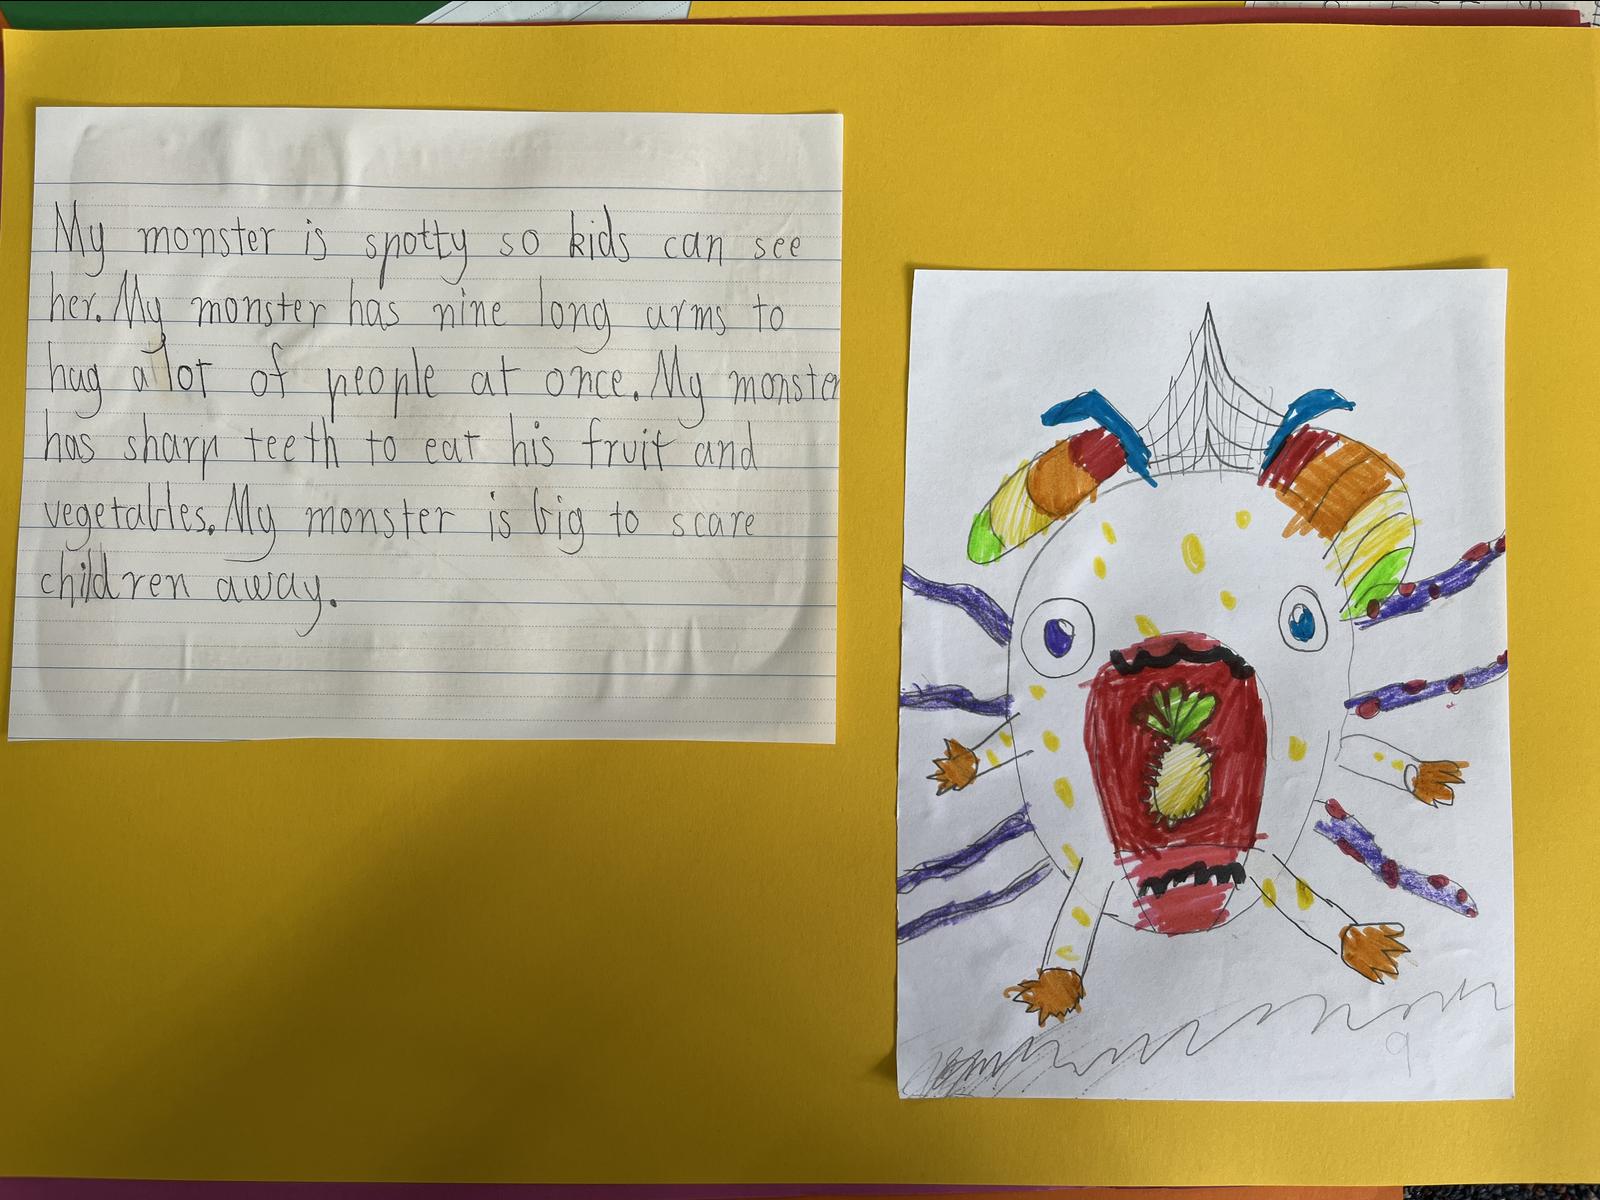 My monster is spotty so kids can see
her. My monster has nine long arms to
hug a lot of people at once. My monster
has sharp teeth to eat his fruit and
vegetables. My monster is big to scare
children away.
9